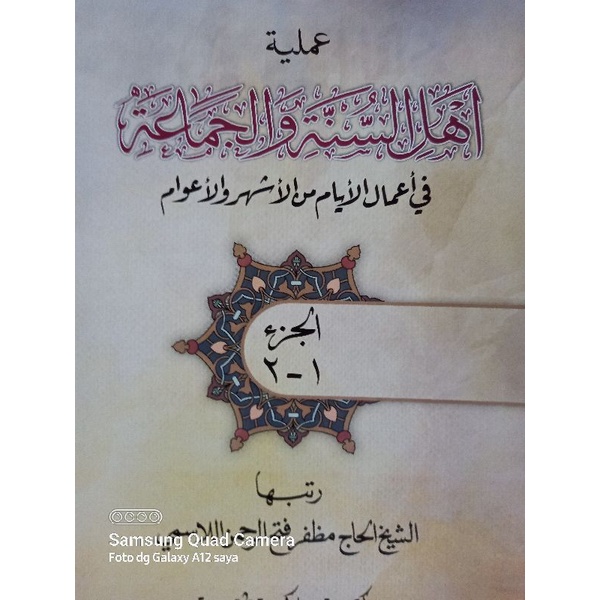 عملية
اَهْلِ السُّنَّةِ وَالْجَمَاعَةْ
في أعمال الأيام من الأشهر والأعوام
الجزء
١-٢
رتبها
الشيخ الحاج مظفر فتح الرحمن اللاسمي
Samsung Quad Camera
Foto dg Galaxy A12 saya